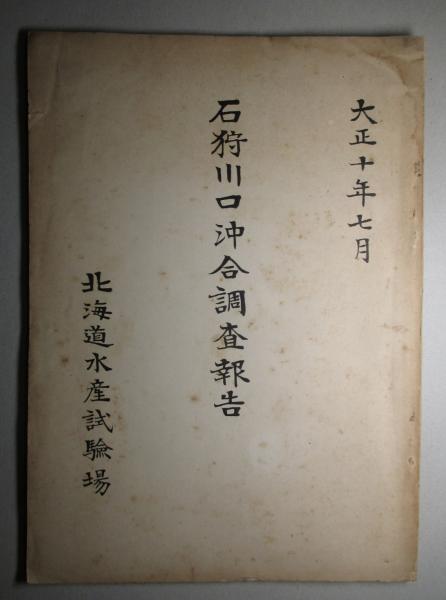 大正十年七月
石狩川口沖合調査報告
北海道水産試驗場